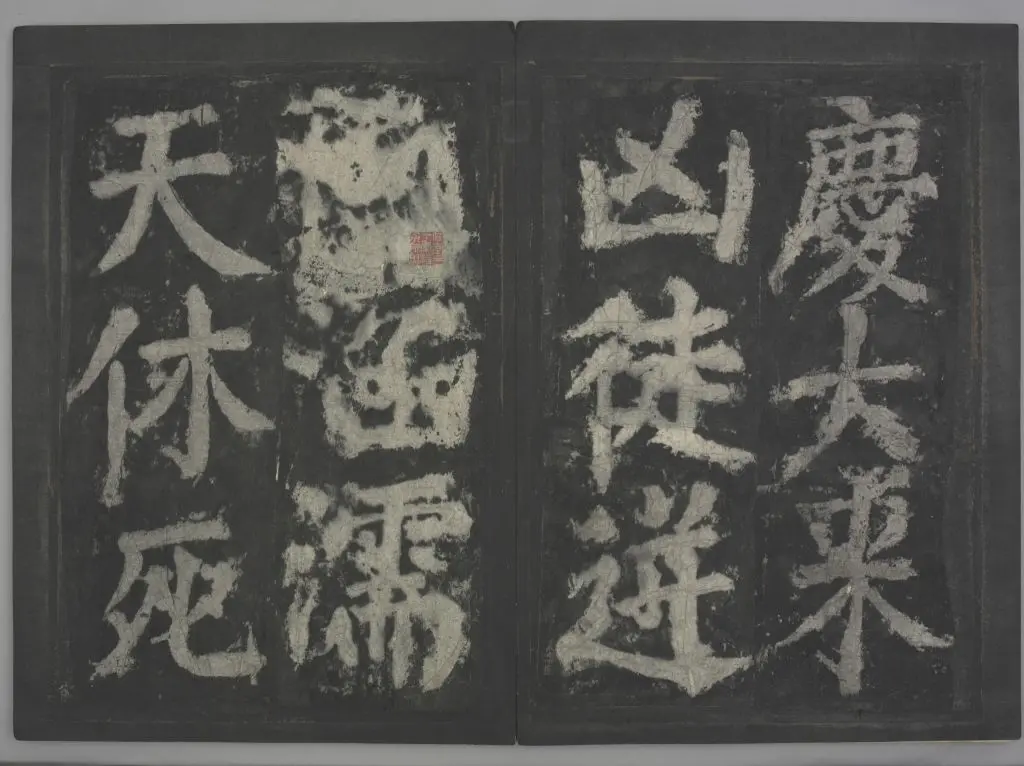 慶大來
凶徒逆
涵濡
天休死